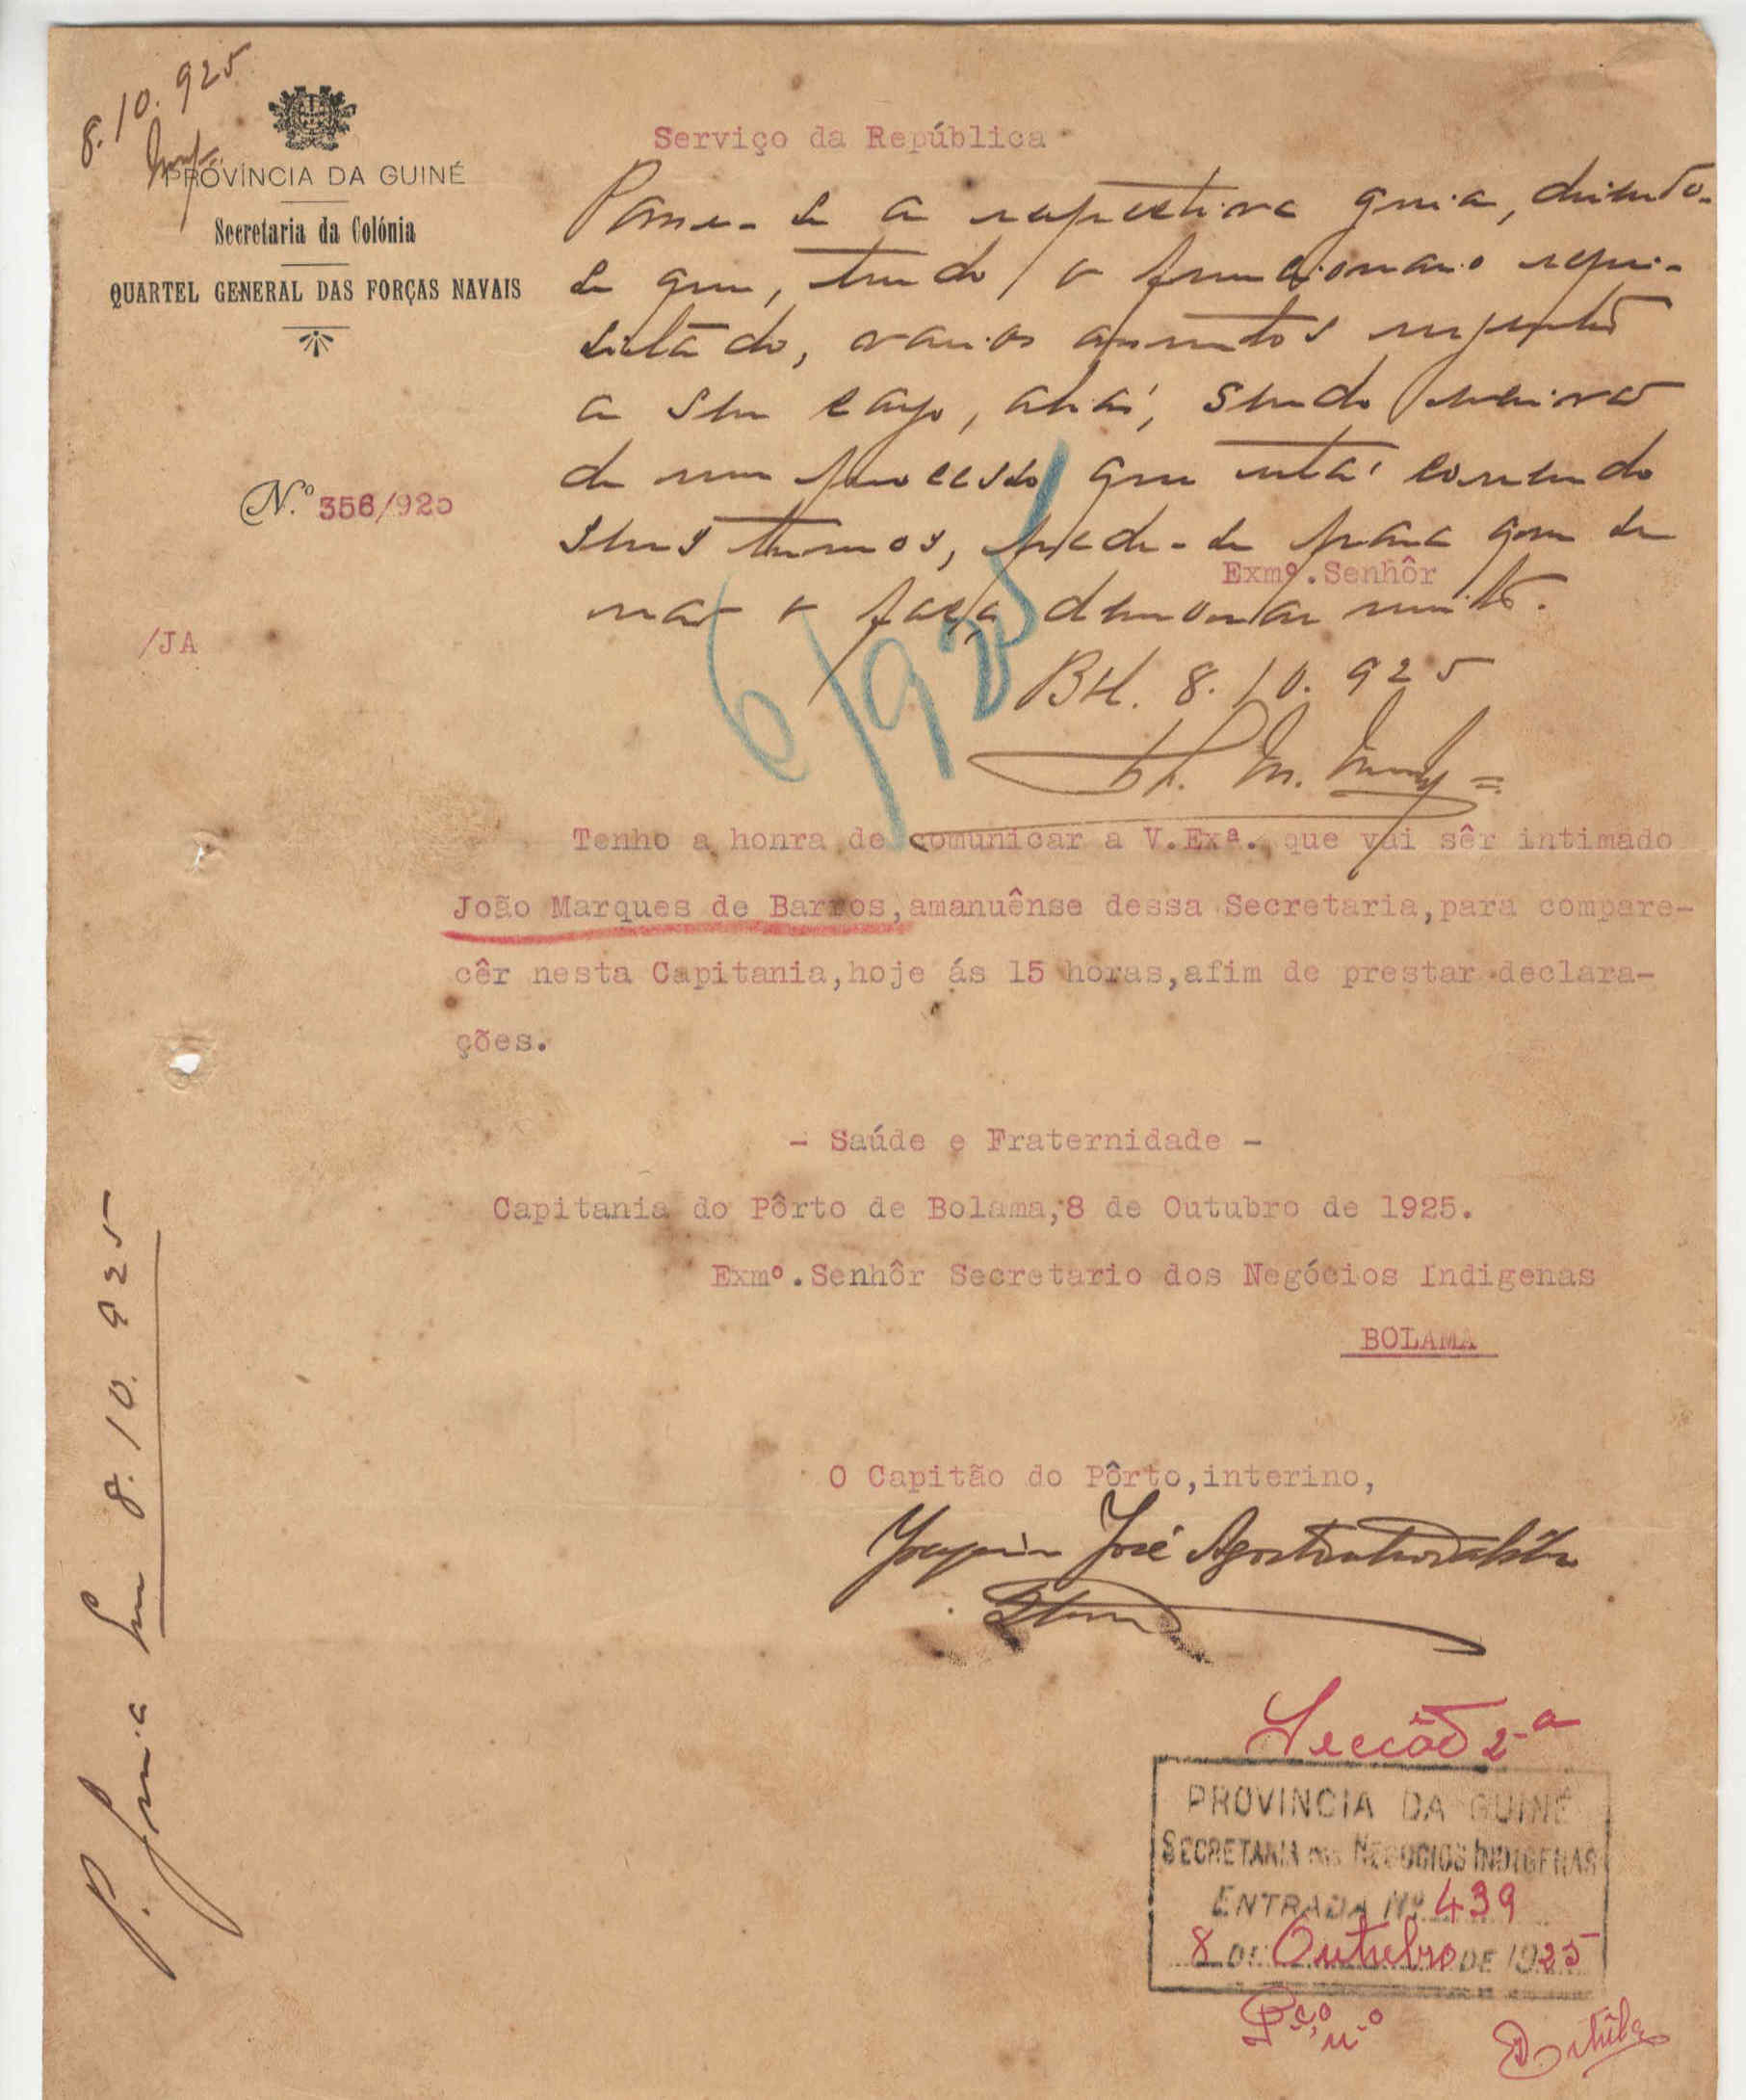 8.10.925
PROVÍNCIA DA GUINÉ
Secretaria da Colónia
QUARTEL GENERAL DAS FORÇAS NAVAIS
Nº 356/925
/JA
Serviço da República
Passe-se a respectiva guia, dizendo-
se que, tendo o funcionario requi-
sitado, varios assuntos urgentes
a seu cargo, aliás, sendo
de um processo que está correndo
seus termos, pede-se para que se
não o faça demorar muito.
Exmº.Senhôr
6/925
BH. 8.10.925
Tenho a honra de comunicar a V.Exª. que vai sêr intimado
João Marques de Barros,amanuênse dessa Secretaria,para compare-
cêr nesta Capitania,hoje ás 15 horas,afim de prestar declara-
ções.
- Saúde e Fraternidade -
Capitania do Pôrto de Bolama,8 de Outubro de 1925.
Exmº.Senhôr Secretario dos Negócios Indigenas
BOLAMA
O Capitão do Pôrto,interino,
Joaquim José
P. guia em 8.10.925
Secção 2-a
PROVINCIA DA GUINÉ
SECRETARIA DOS NEGOCIOS INDIGENAS
ENTRADA Nº 439
8 DE Outubro DE 1925
Pço nº